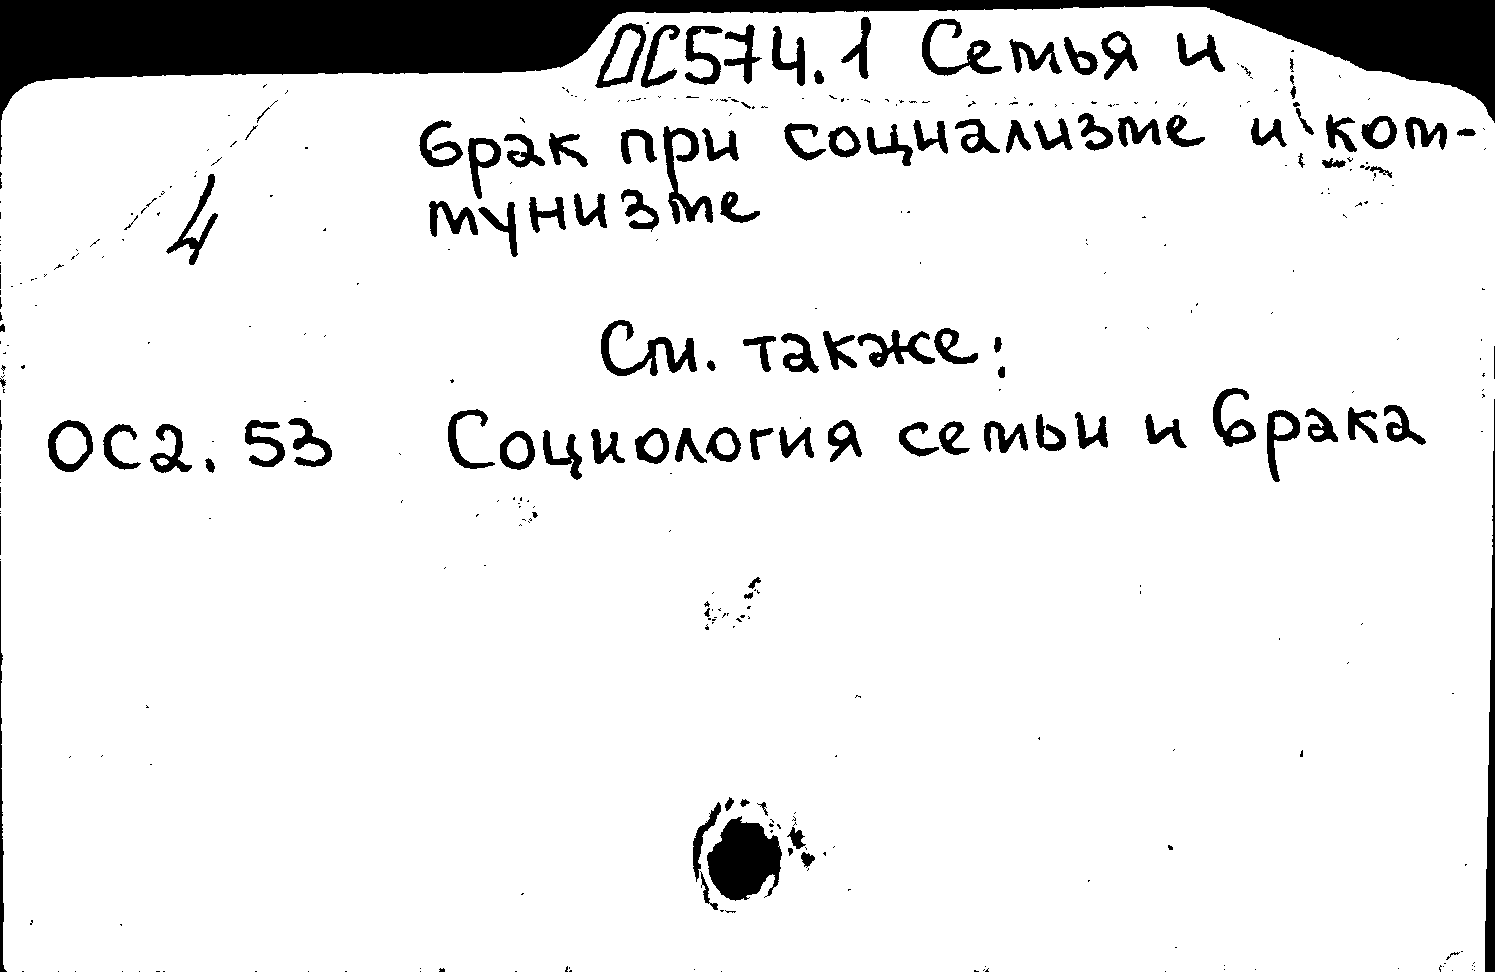 ОС574.1 Семья и
брак при социализме и ком-
мунизме
4
См. также:
ОС2.53 Социология семьи и брака